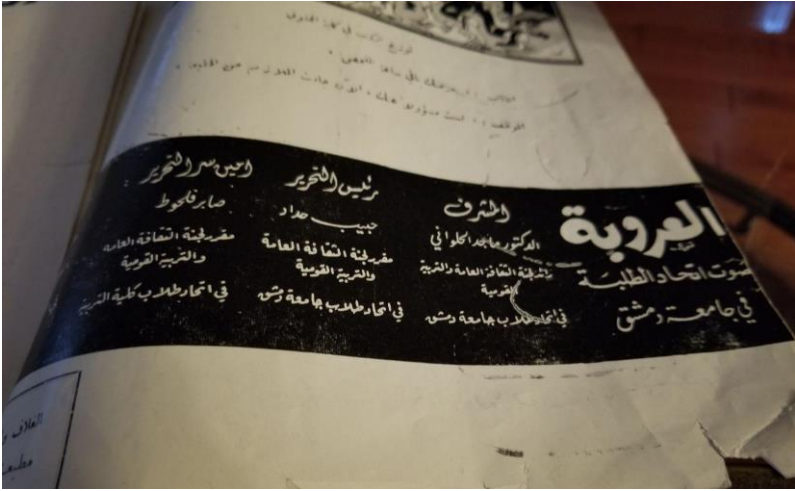 العروبة
صوت اتحاد الطلبة
في جامعة دمشق
المشرف
الدكتور ماجد الحلواني
رائد لجنة الثقافة العامة والتربية
القومية
في اتحاد طلاب جامعة دمشق
رئيس التحرير
حبيب حداد
مقرر لجنة الثقافة العامة
والتربية القومية
في اتحاد طلاب جامعة دمشق
امين سر التحرير
صابر فلحوط
مقرر لجنة الثقافة العامة
والتربية القومية
في اتحاد طلاب كلية التربية
الغلاف